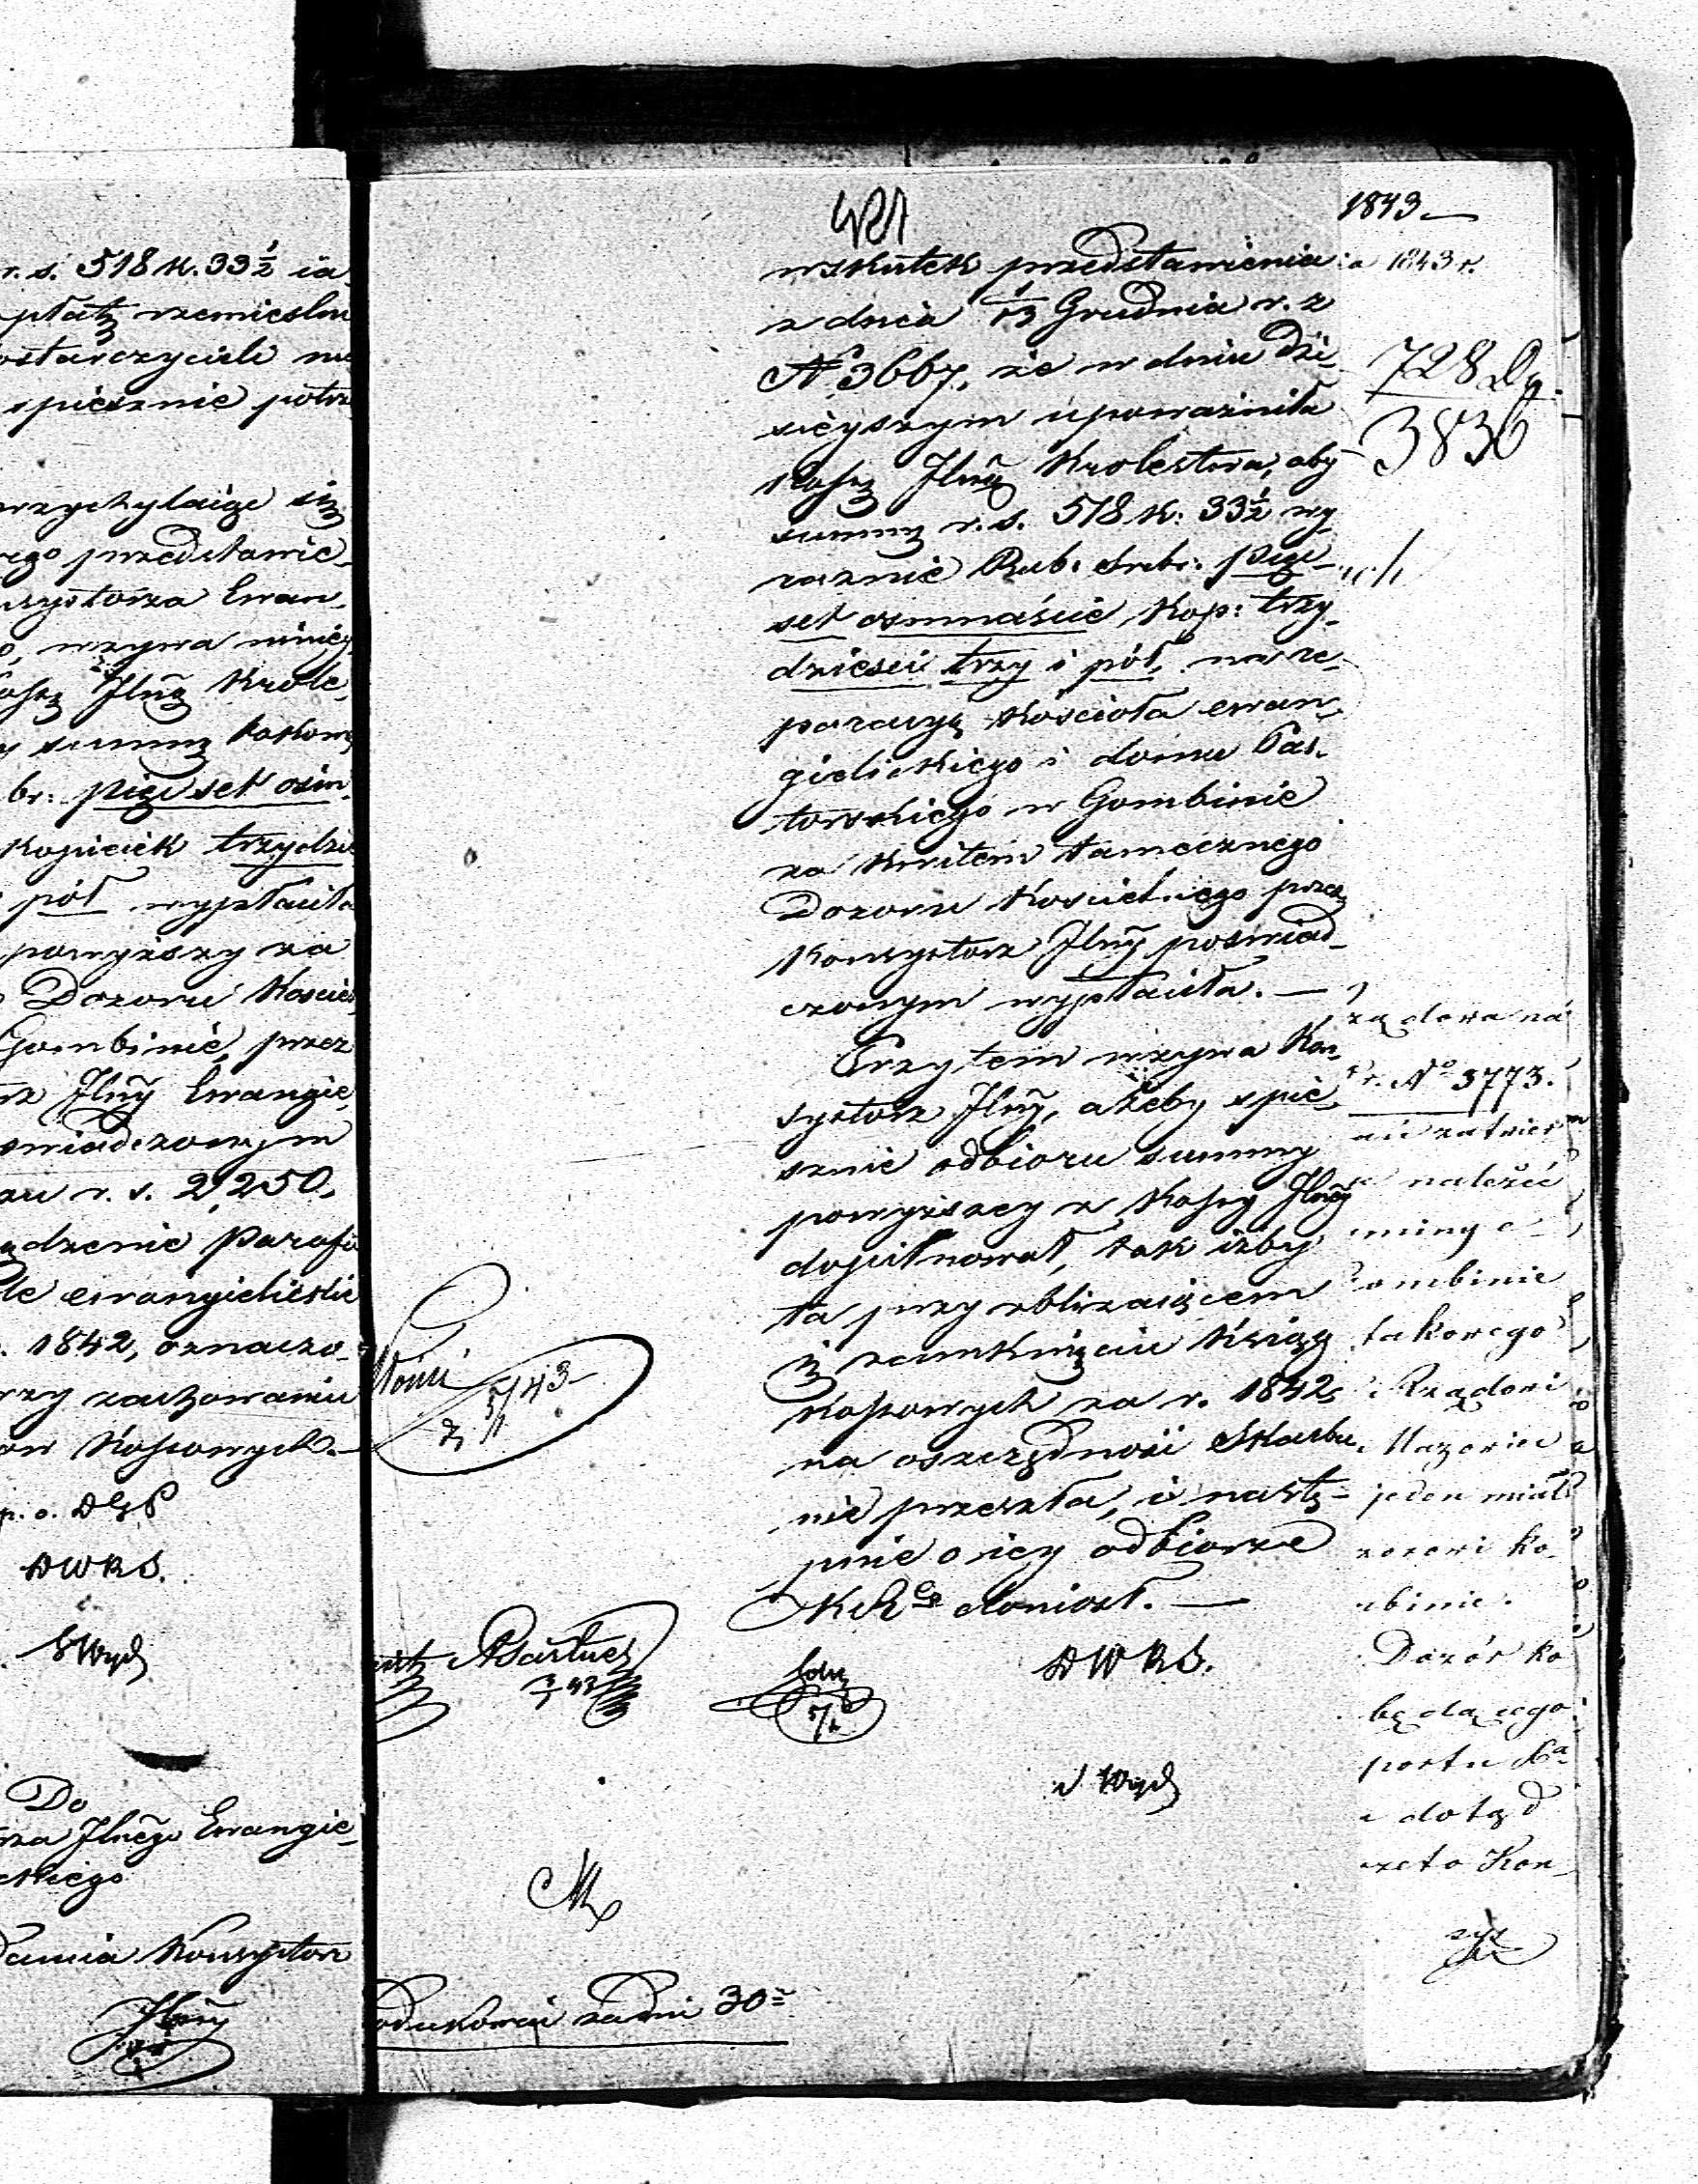 r. s. 518 k. 33½ ia
płatę rzemieslni
ostarczycieli
spiesznie potrz
przychylaiąc się
ego przedstawie
nsystorza Ewan
wzywa niniey
assę Jlną Krole
summę takową
br: pięćset osim
Kopieiek trzydzie
pół wypłaciła
powyższy za
Dozoru Kościel
Gombinie, przez
rz Jlny Ewangie
oswiadczonym
r. s. 2,250,
ądzenie Parafii
le ewangielickie
1842, oznaczo
rzy zachowaniu
ów Kassowych.—
p. o. DGP
DWRS.
Do
rza Jlnego Ewangie
ckiego
Konsystorz
Jlny
wskutek przedstawienia
z dnia 1/13 Grudnia r. z
N 3667, że w dniu dzi
sieyszym upoważniła
Kassę Jlną Krolestwa, aby
summę r. s. 518 k: 33½ wy
raznie Rub. Srebr. pięć
set osmnaście Kop: trzy
dzieści trzy i pół, na re
paracyę Kościoła ewan
gielickiego i domu Pas
torskiego w Gombinie
za kwitem tamecznego
Dozoru Kościelnego przez
Konsystorz Jlny poswiad
czonym wypłaciła.—
Przytem wzywa Kon
systorz Jlny, ażeby spie
sznie odbioru summy
powyższey z Kassy Jlney
dopilnował, tak iżby
ta przy zbliżaiącem
się zamknięciu Xsiąg
Kassowych za r. 1842,
na oszczędność Skarbu
nie przeszła, i nastę
pnie o iey odbiorze
doniosł.—
DWRS.
5/1 43
30
1843—
a 1843 r.
728
3836
ządowa
N° 3773.
należć
miny
Gombinie
takowego
Rządowi
Mazowie
jeden
zorowi Ko
binie.
Dozór ko
będącego
portu
dotąd
Kon